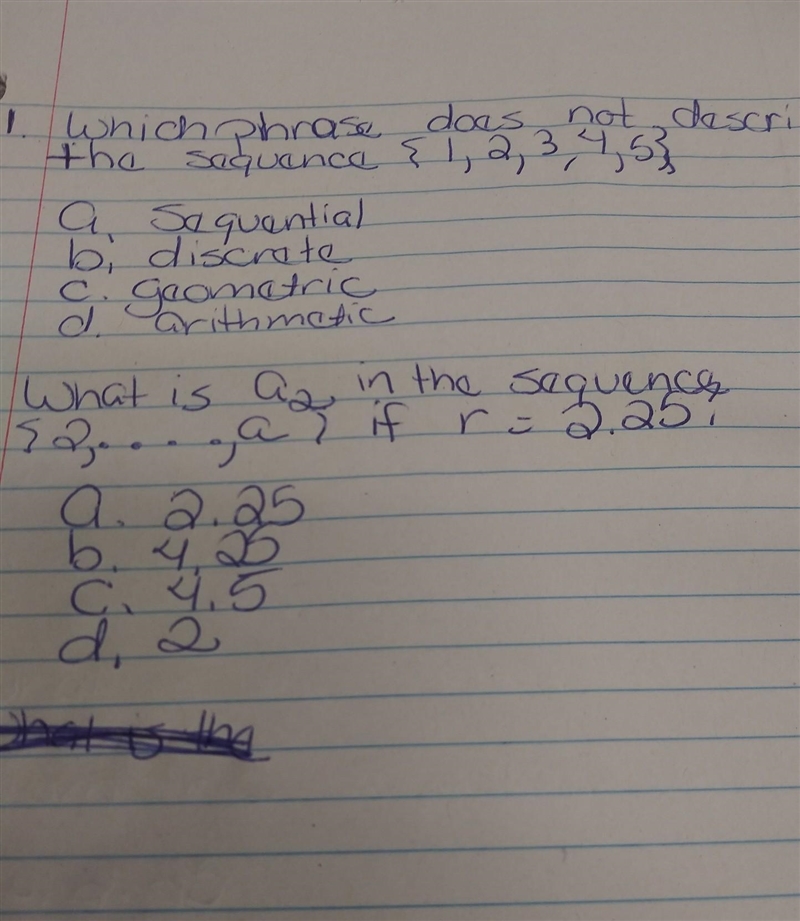 1. Which phrase does not descri
the sequence {1, 2, 3, 4, 5}
a. Sequential
b. discrete
c. geometric
d. arithmetic
What is a2 in the sequence
{2, . . . . , a} if r = 2.25.
a. 2.25
b. 4.25
c. 4.5
d. 2
What is the